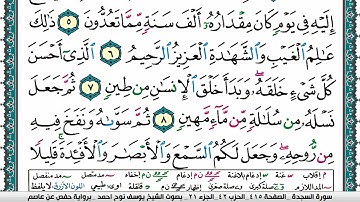 إِلَيْهِ فِي يَوْمٍ كَانَ مِقْدَارُهُ أَلْفَ سَنَةٍ مِّمَّا تَعُدُّونَ ٥ ذَٰلِكَ
عَالِمُ الْغَيْبِ وَالشَّهَادَةِ الْعَزِيزُ الرَّحِيمُ ٦ الَّذِي أَحْسَنَ
كُلَّ شَيْءٍ خَلَقَهُ وَبَدَأَ خَلْقَ الْإِنسَانِ مِن طِينٍ ٧ ثُمَّ جَعَلَ
نَسْلَهُ مِن سُلَالَةٍ مِّن مَّاءٍ مَّهِينٍ ٨ ثُمَّ سَوَّاهُ وَنَفَخَ فِيهِ
مِن رُّوحِهِ وَجَعَلَ لَكُمُ السَّمْعَ وَالْأَبْصَارَ وَالْأَفْئِدَةَ قَلِيلًا
سورة السجدة الصفحة ٤١٥ الحزب ٤٢ الجزء ٢١ بصوت الشيخ يوسف نوح احمد برواية حفص عن عاصم